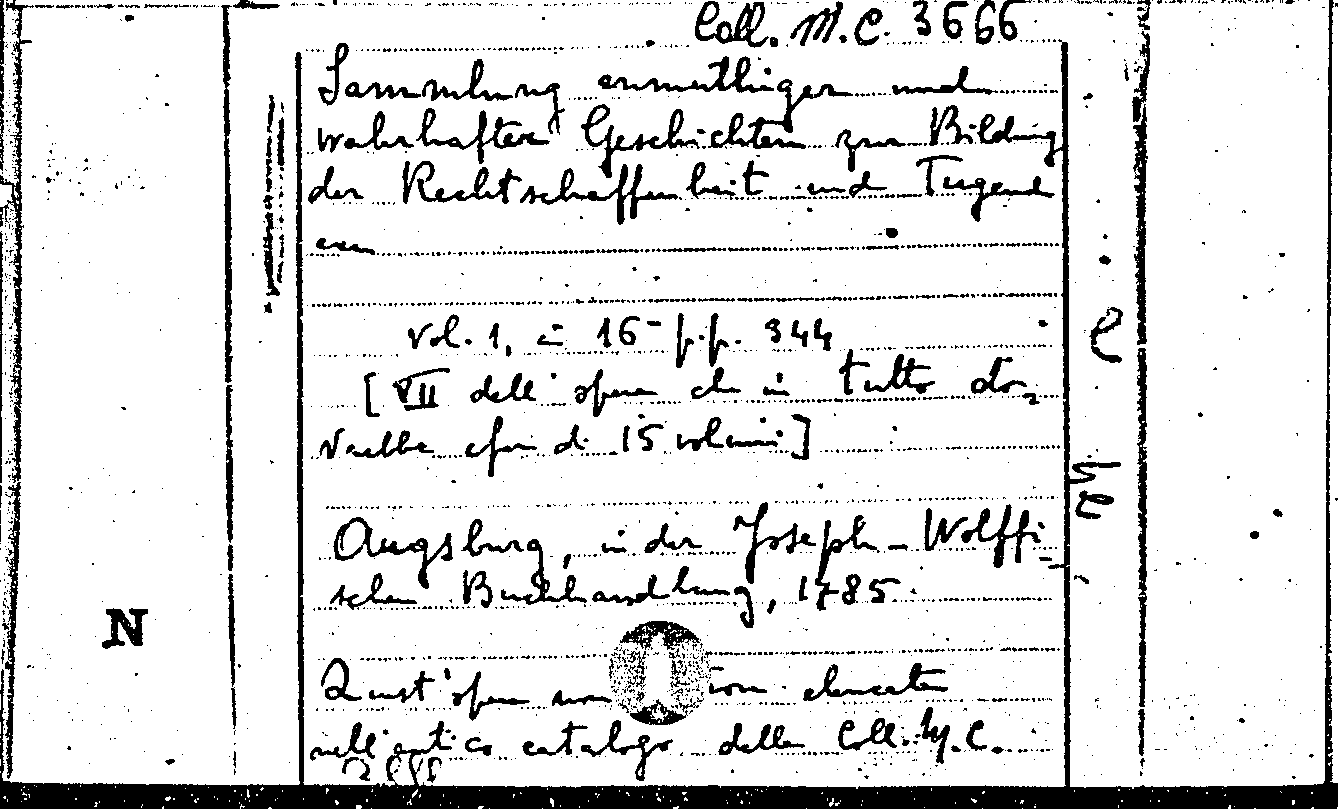 Coll. M.C. 3666
Sammlung anmuthiger und
wahrhafter Geschichten zur Bildung
der Rechtschaffenheit und Tugend
vol. 1, in 16 p.p. 344
[VII dell'opera che in tutto do-
vrebbe esser di 15 volumi]
Augsburg, in der Joseph-Wolffi-
schen Buchhandlung, 1785.
N
Quest'opera non elencata
nell'antico catalogo della Coll. M.C.